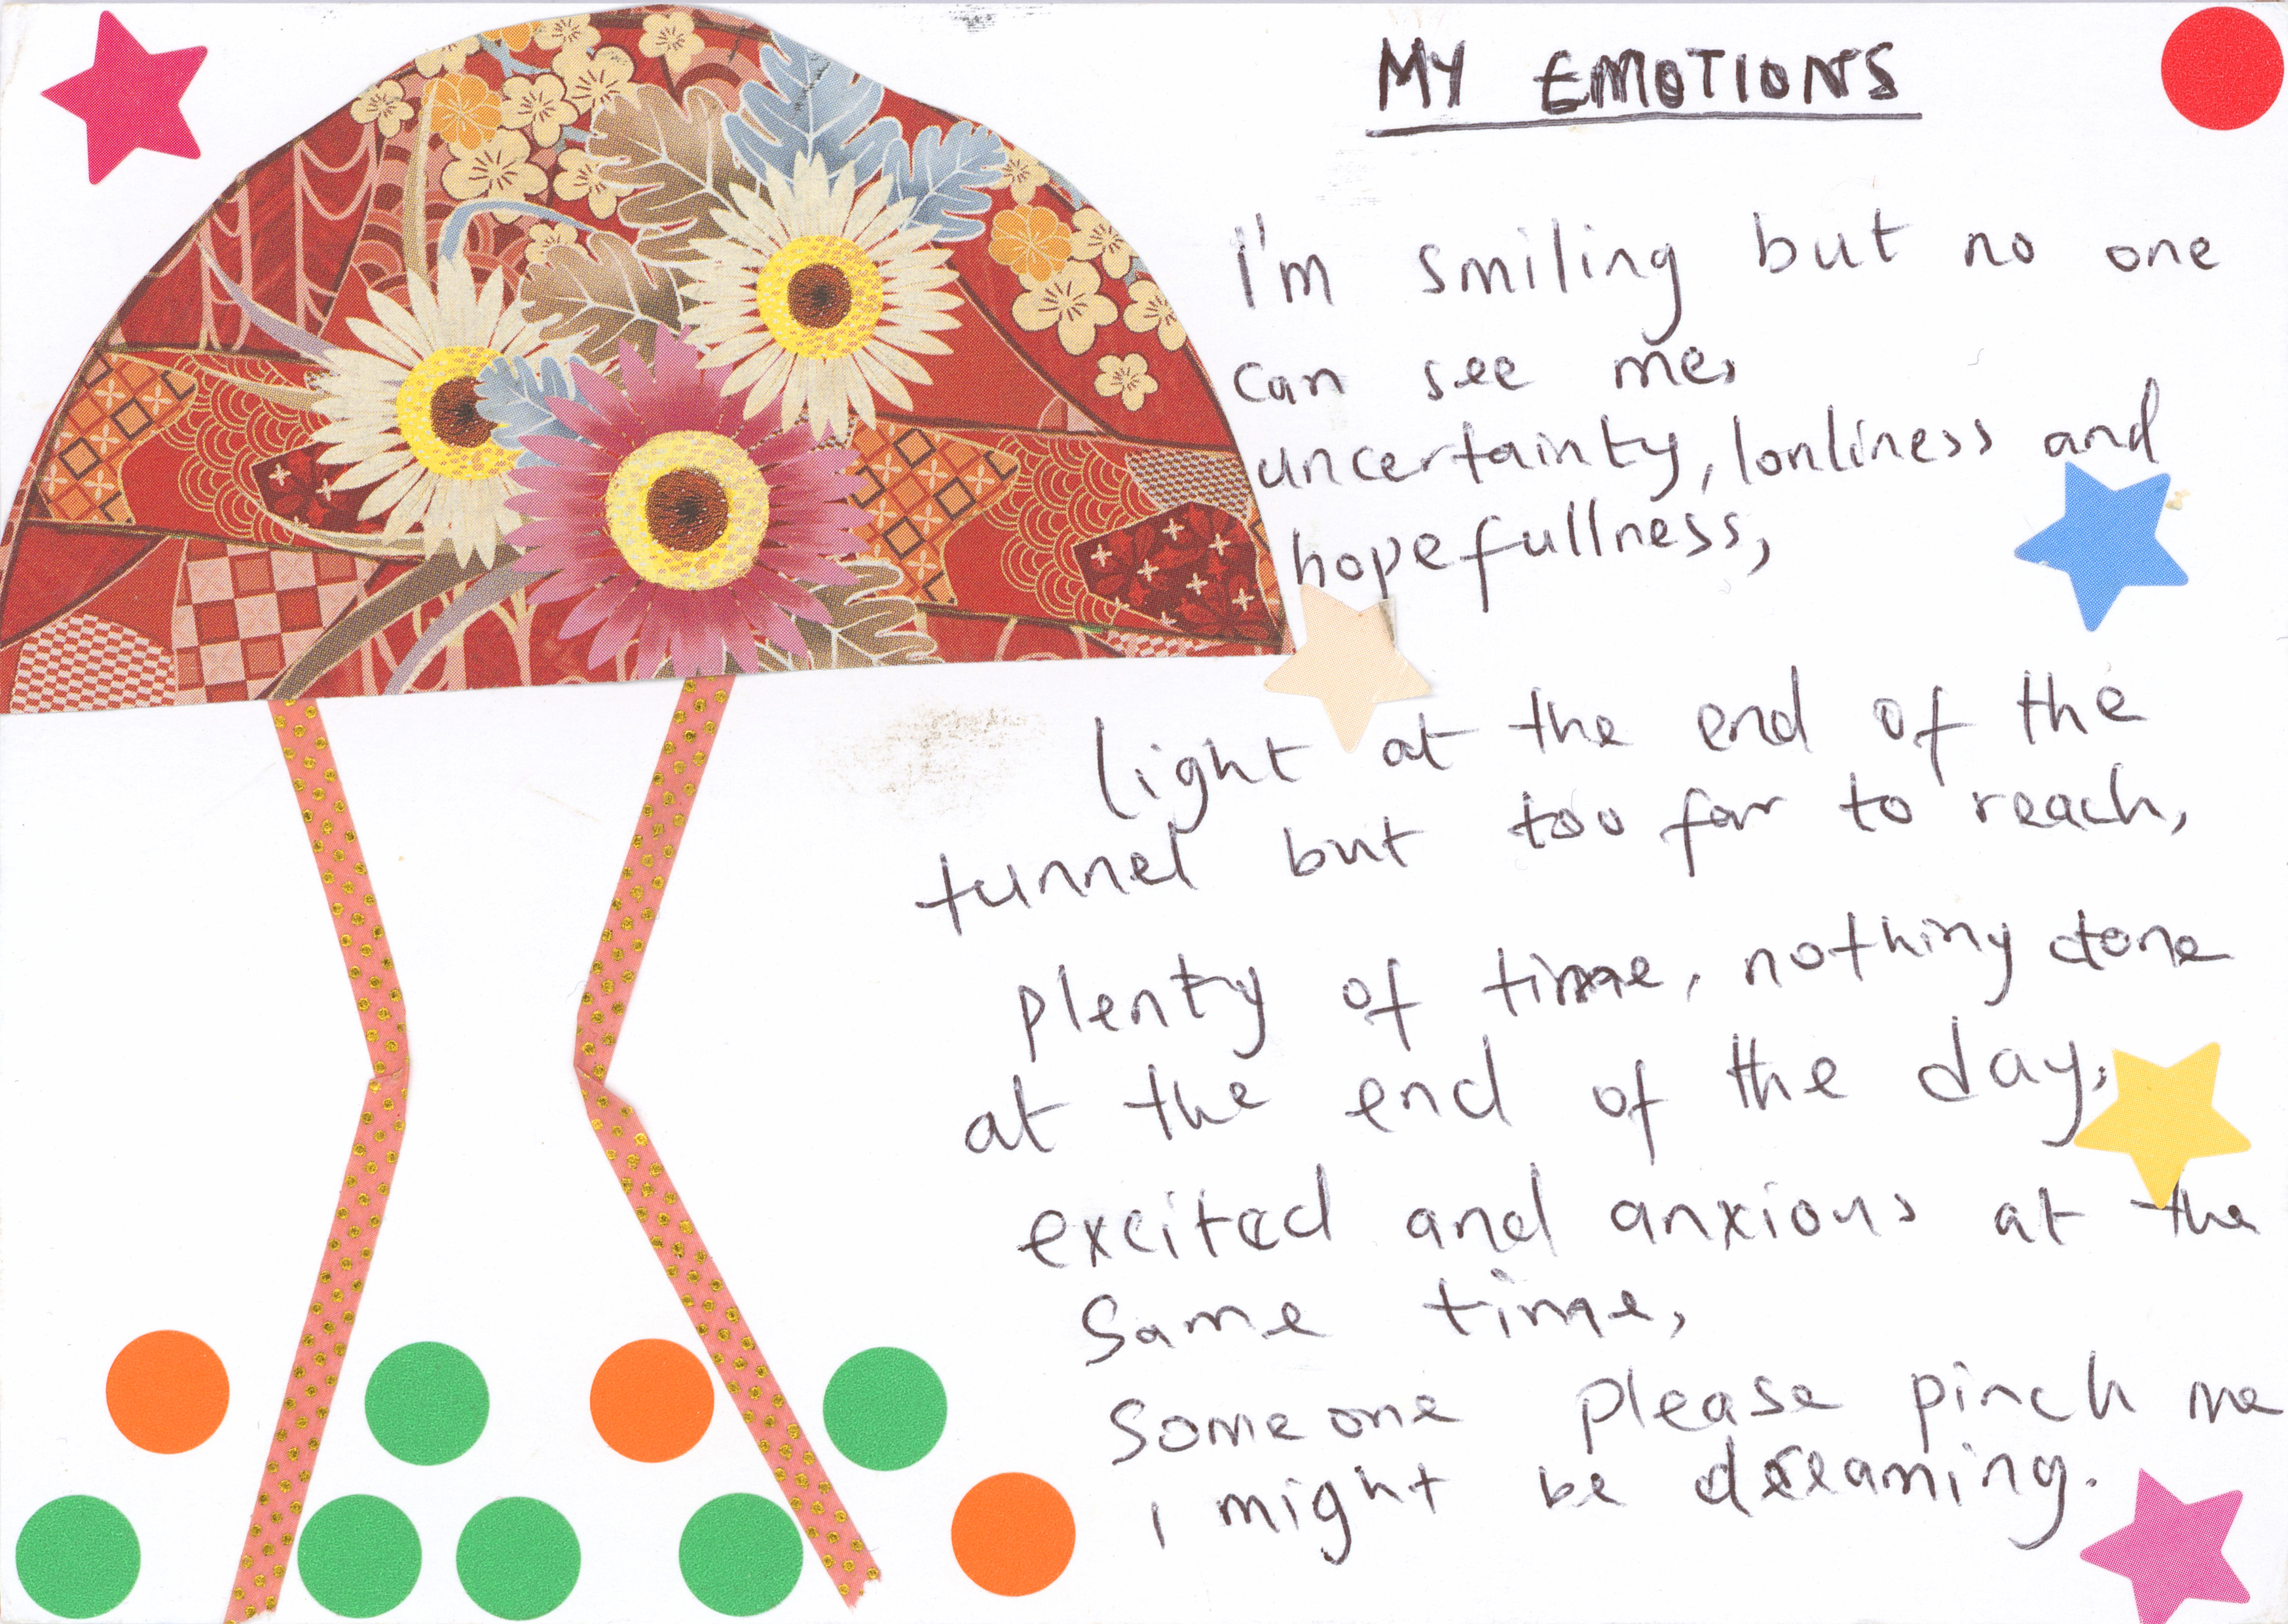 MY EMOTIONS
I'm smiling but no one
can see me,
uncertainty, lonliness and
hopefullness,
light at the end of the
tunnel but too far to reach,
plenty of time, nothing done
at the end of the day,
excited and anxious at the
same time,
Someone please pinch me
i might be dreaming.